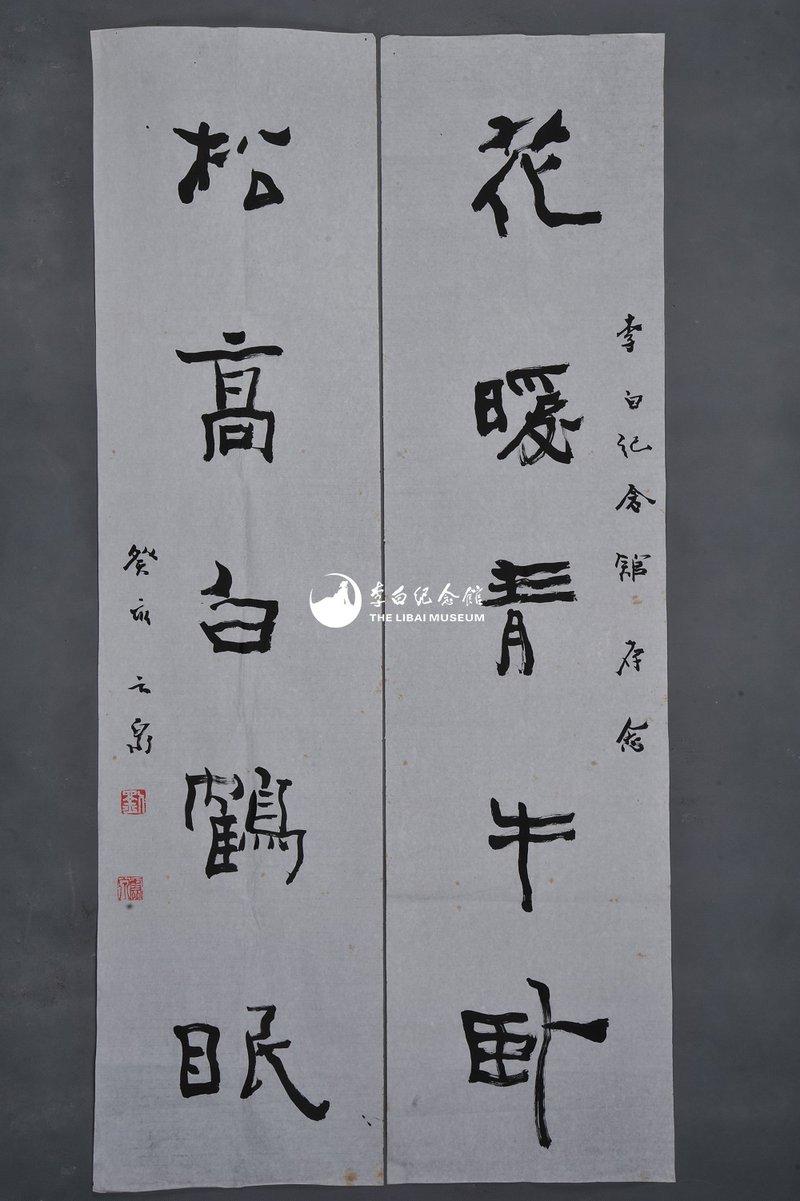 花暖青牛卧
李白纪念馆存念
松高白鹤眠
癸亥云泉
李白纪念馆
THE LIBAI MUSEUM